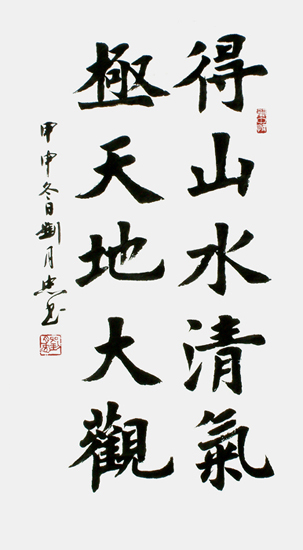 得山水清氣
極天地大觀
甲申冬日劉月忠書